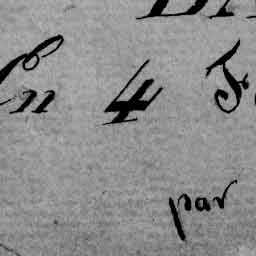 En 4 F
par